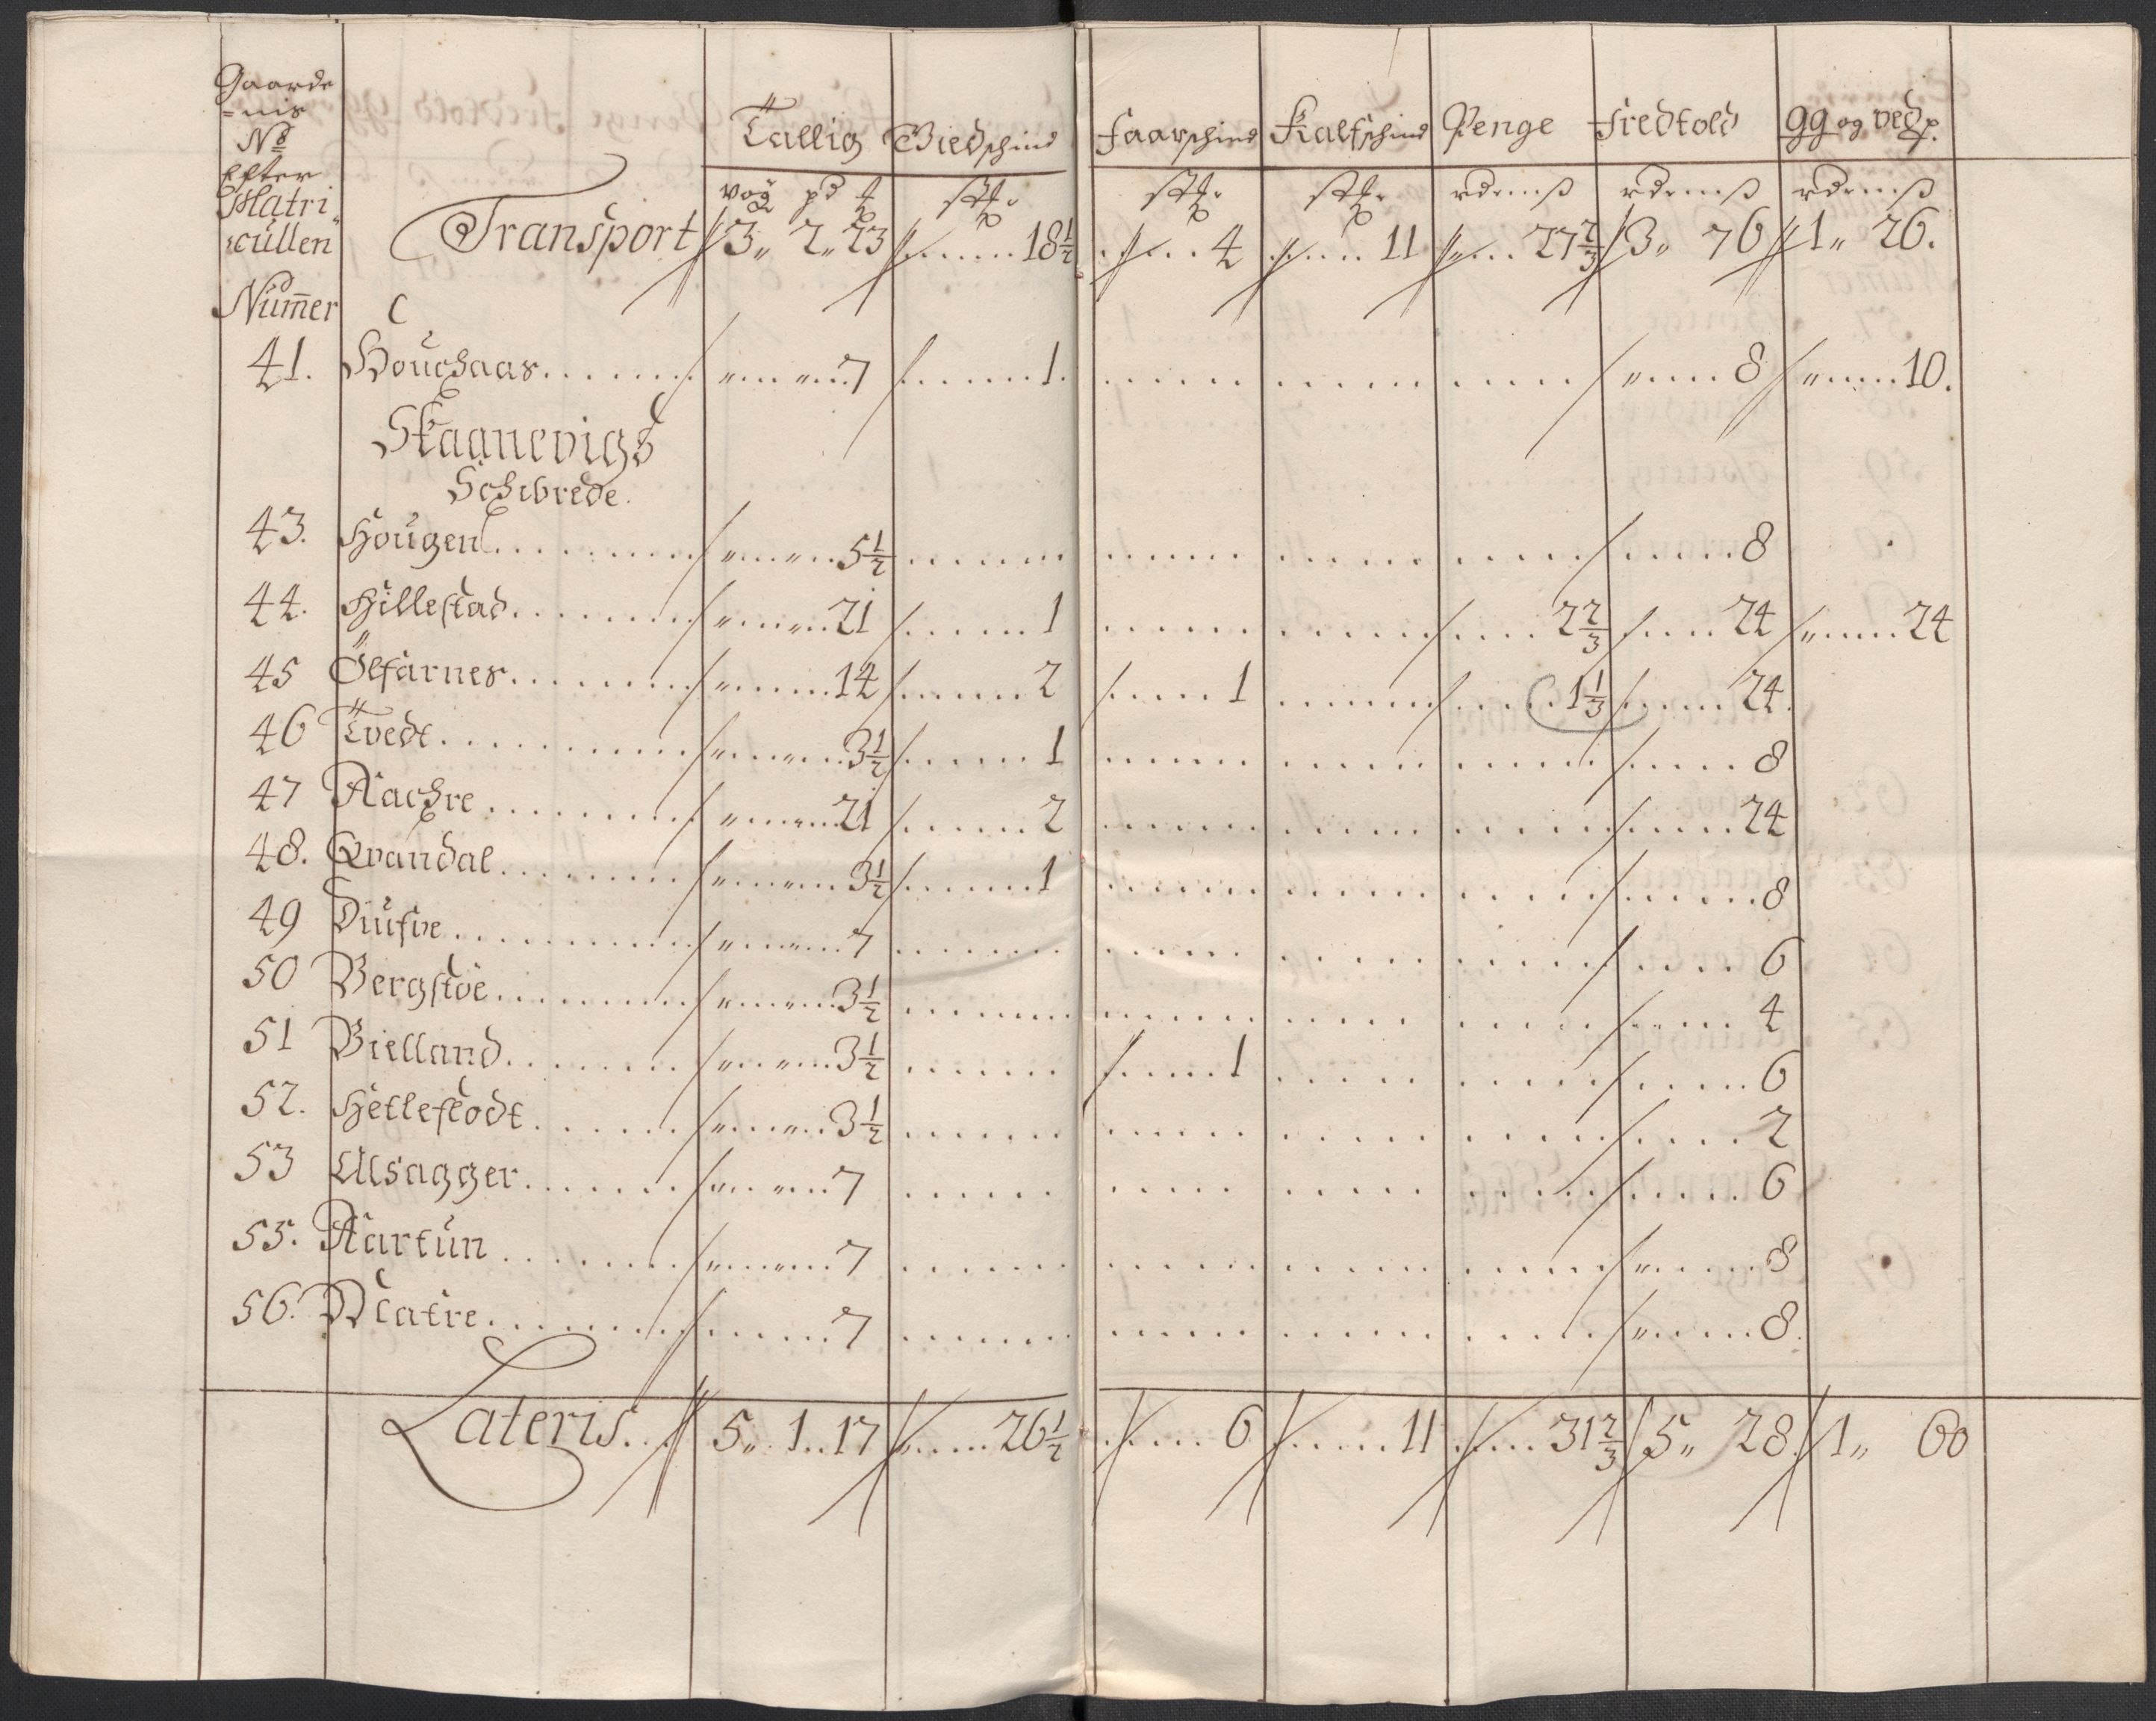 Gaarde
=nis
No
Efter
Matri
cullen
Nummer
Tallig Biedschind Faarschind Kalfschind Penge Fredtold gg og ved p.
vog pd
Transport 3„ 2„ 23 18½ 4 11 27 2/3 3„ 76 1„ 26.
41. Houchaas 7 1. 8 10.
Skaanevigs
Schibrede.
43. Hougen 5½ 8
44. Hillestad 21 1 2 2/3 24 24
45 Ølfarnes 14 2 1 1 1/3 24.
46 Tvedt 3½ 1 8
47 Aachre 21 2 24
48. Qvandal 3½ 1 8
49 Diufve 7 6
50 Bergstøe 3½ 4
51 Bielland 3½ 1 6
52. Hetleflodt 3½ 2
53 Alsagger 7 6
55. Aartun 7 8
56. Matre 7 8.
Lateris 5„ 1„ 17 26½ 6 11 31 2/3 5„ 28. 1„ 60